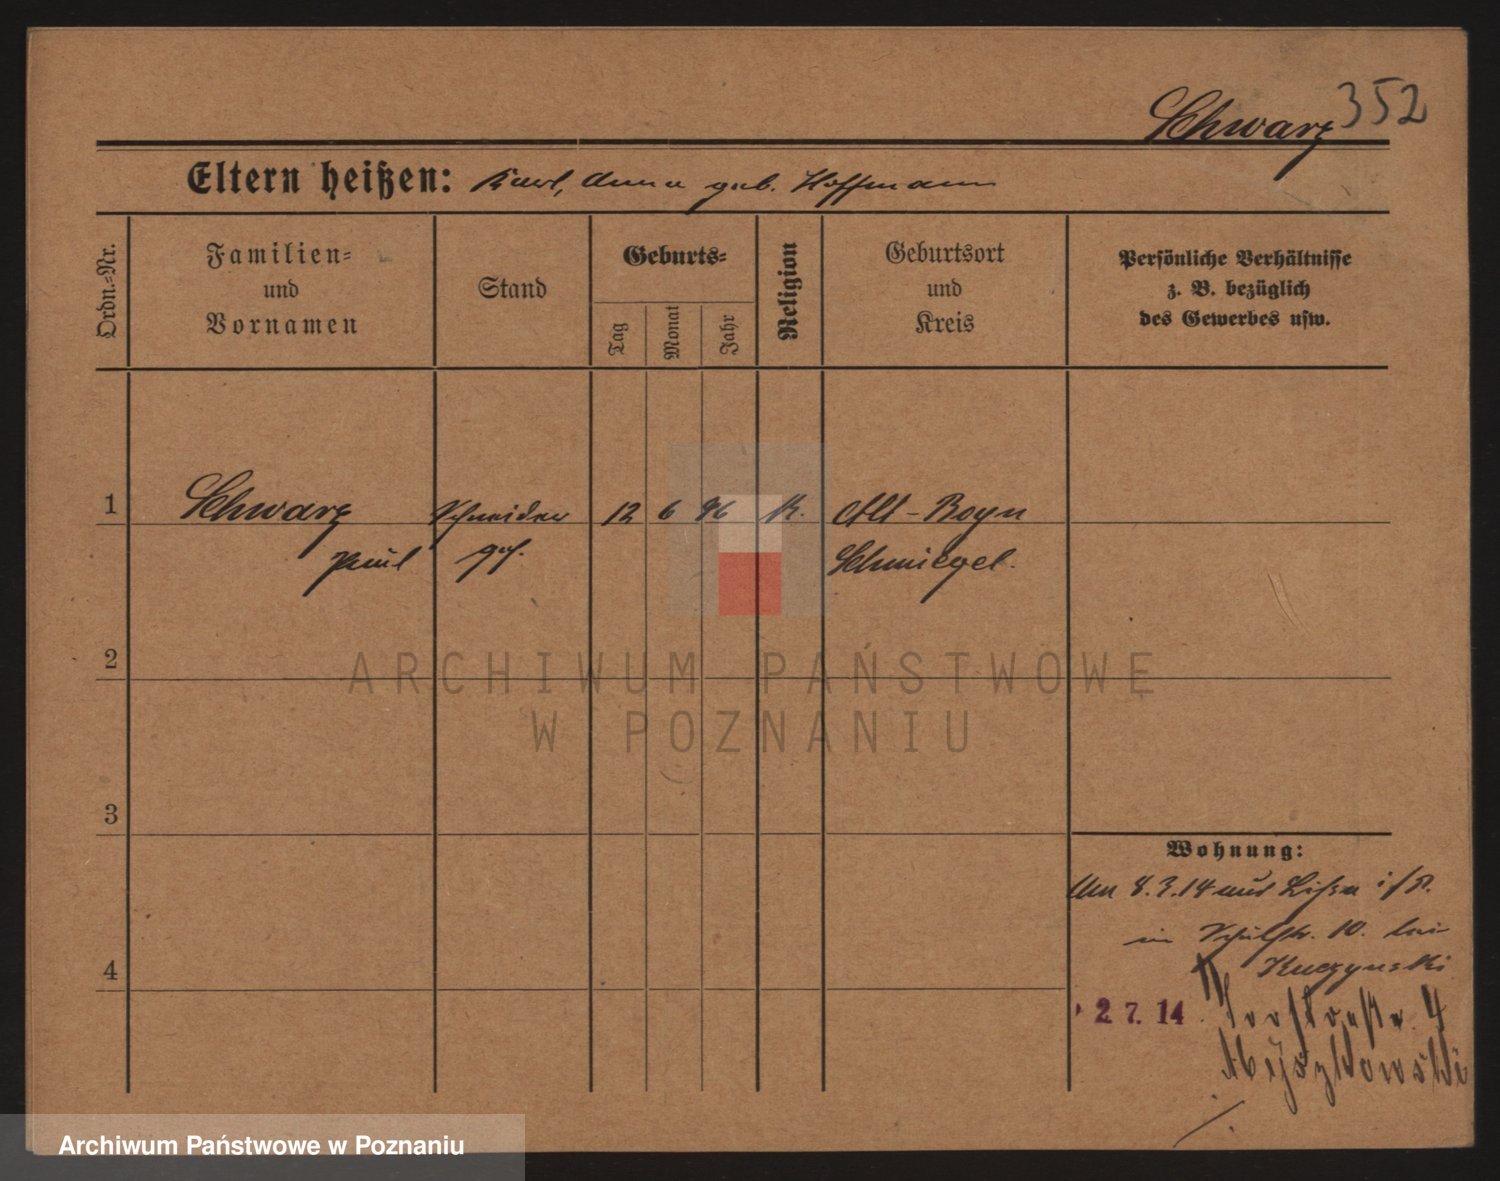 352
Schwarz
Eltern heißen: Karl, Anna geb. Hoffmann
Ordn.-Nr.
Familien-
und
Vornamen
Stand
Geburts-
Tag
Monat
Jahr
Religion
Geburtsort
und
Kreis
Persönliche Verhältnisse
z. B. bezüglich
des Gewerbes usw.
1
Schwarz Schneider 12 6 96 K. Alt-Boyn
Paul ges. Schmiegel.
2
3
4
Wohnung:
Am 8.3.14 aus Lissa i/P.
in Schulstr. 10. bei
Kuczynski
2. 7. 14
4
ARCHIWUM PAŃSTWOWE
W POZNANIU
Archiwum Państwowe w Poznaniu